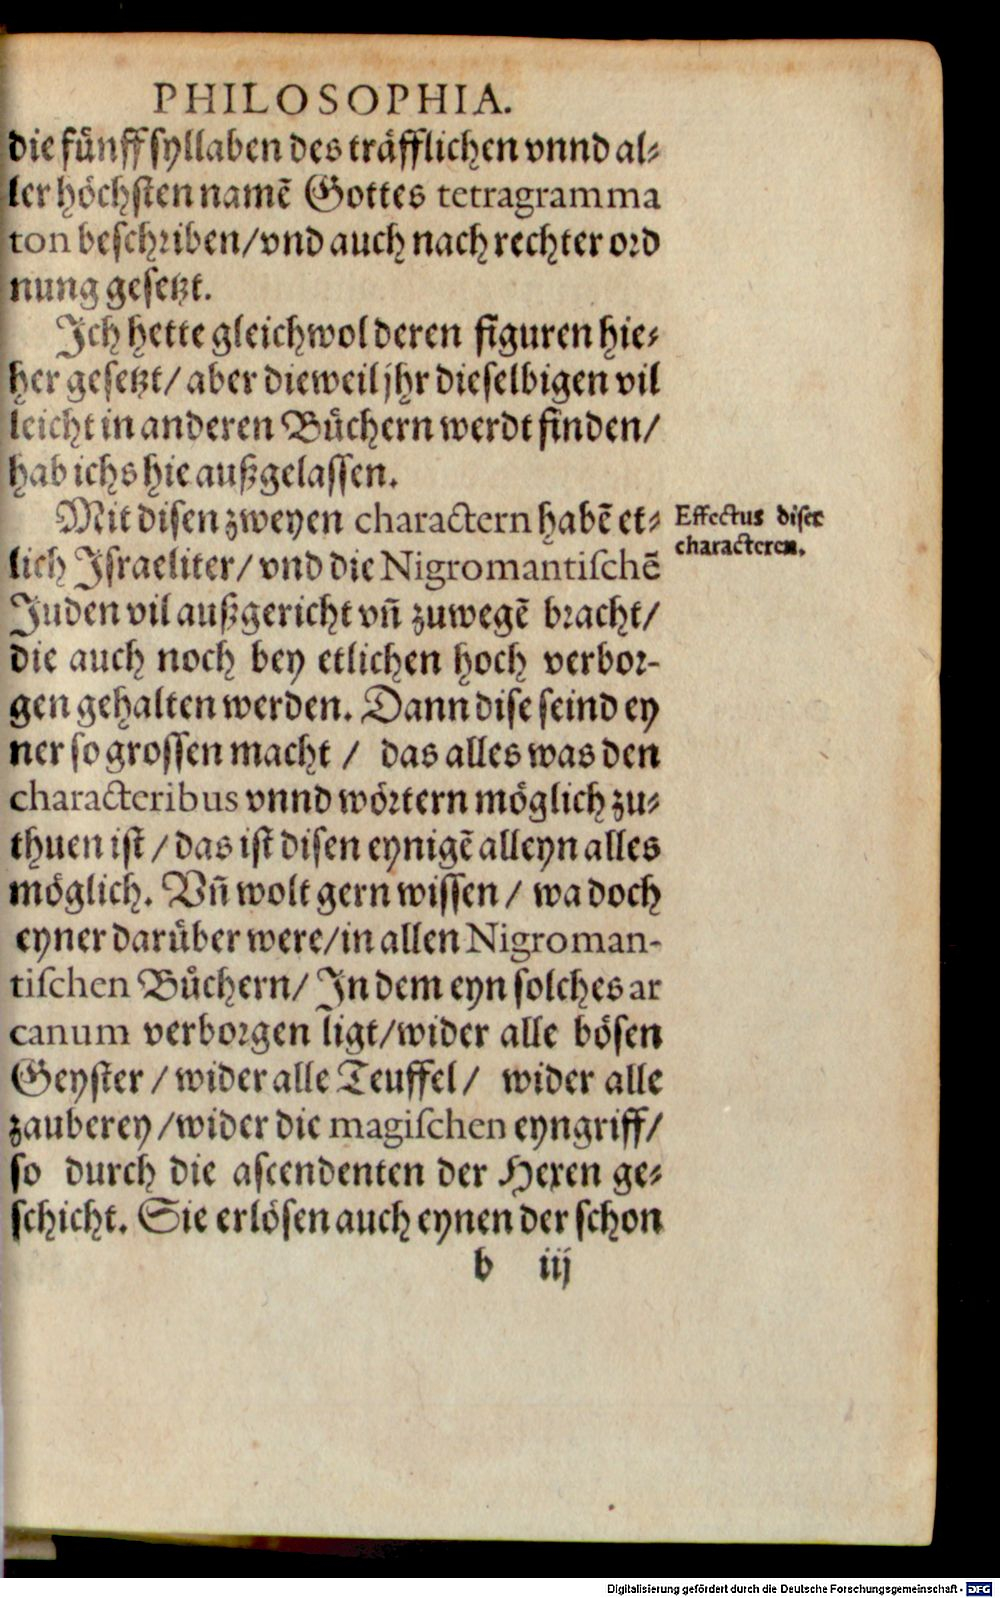 PHILOSOPHIA.
die fünff syllaben des träfflichen vnnd al⸗
ler höchsten namẽ Gottes tetragramma
ton beschriben/vnd auch nach rechter ord
nung gesetzt.
Ich hette gleichwol deren figuren hie⸗
her gesetzt/ aber dieweil jhr dieselbigen vil
leicht in anderen Bůchern werdt finden/
hab ichs hie außgelassen.
Mit disen zweyen charactern habẽ et⸗
lich Israeliter/ vnd die Nigromantischẽ
Juden vil außgericht vñ zuwegẽ bracht/
die auch noch bey etlichen hoch verbor-
gen gehalten werden. Dann dise seind ey
ner so grossen macht / das alles was den
characteribus vnnd wörtern möglich zu⸗
thuen ist / das ist disen eynigẽ alleyn alles
möglich. Vñ wolt gern wissen / wa doch
eyner darüber were/in allen Nigroman-
tischen Bůchern/ In dem eyn solches ar
canum verborgen ligt/wider alle bösen
Geyster / wider alle Teuffel / wider alle
zauberey /wider die magischen eyngriff/
so durch die ascendenten der Hexen ge⸗
schicht. Sie erlösen auch eynen der schon
b iij
Effectus diser
characteren.
Digitalisierung gefördert durch die Deutsche Forschungsgemeinschaft - DFG